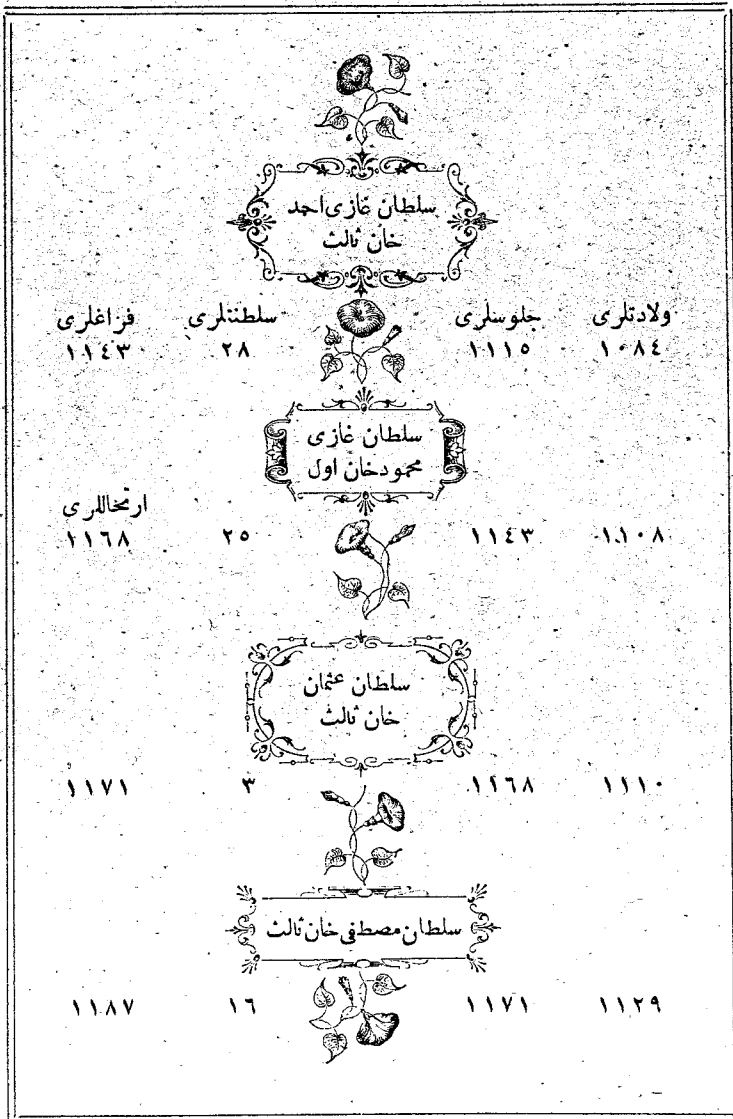 سلطان غازی احمد
خان ثالث
ولادتلری جلوسلری سلطنتلری فراغلری
١٠٨٤ ١١١٥ ٢٨ ١١٤٣
سلطان غازی
محمود خان اول
ارتحاللری
١١٠٨ ١١٤٣ ٢٥ ١١٦٨
سلطان عثمان
خان ثالث
١١١٠ ١١٦٨ ٣ ١١٧١
سلطان مصطفی خان ثالث
١١٢٩ ١١٧١ ١٦ ١١٨٧